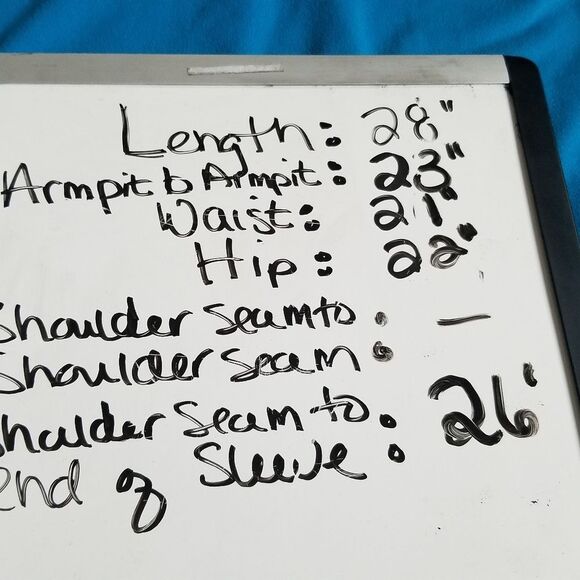 Length: 28"
Armpit to Armpit: 23"
Waist: 21"
Hip: 22"
Shoulder Seam to
Shoulder Seam : —
Shoulder Seam to
end of Sleeve : 26"